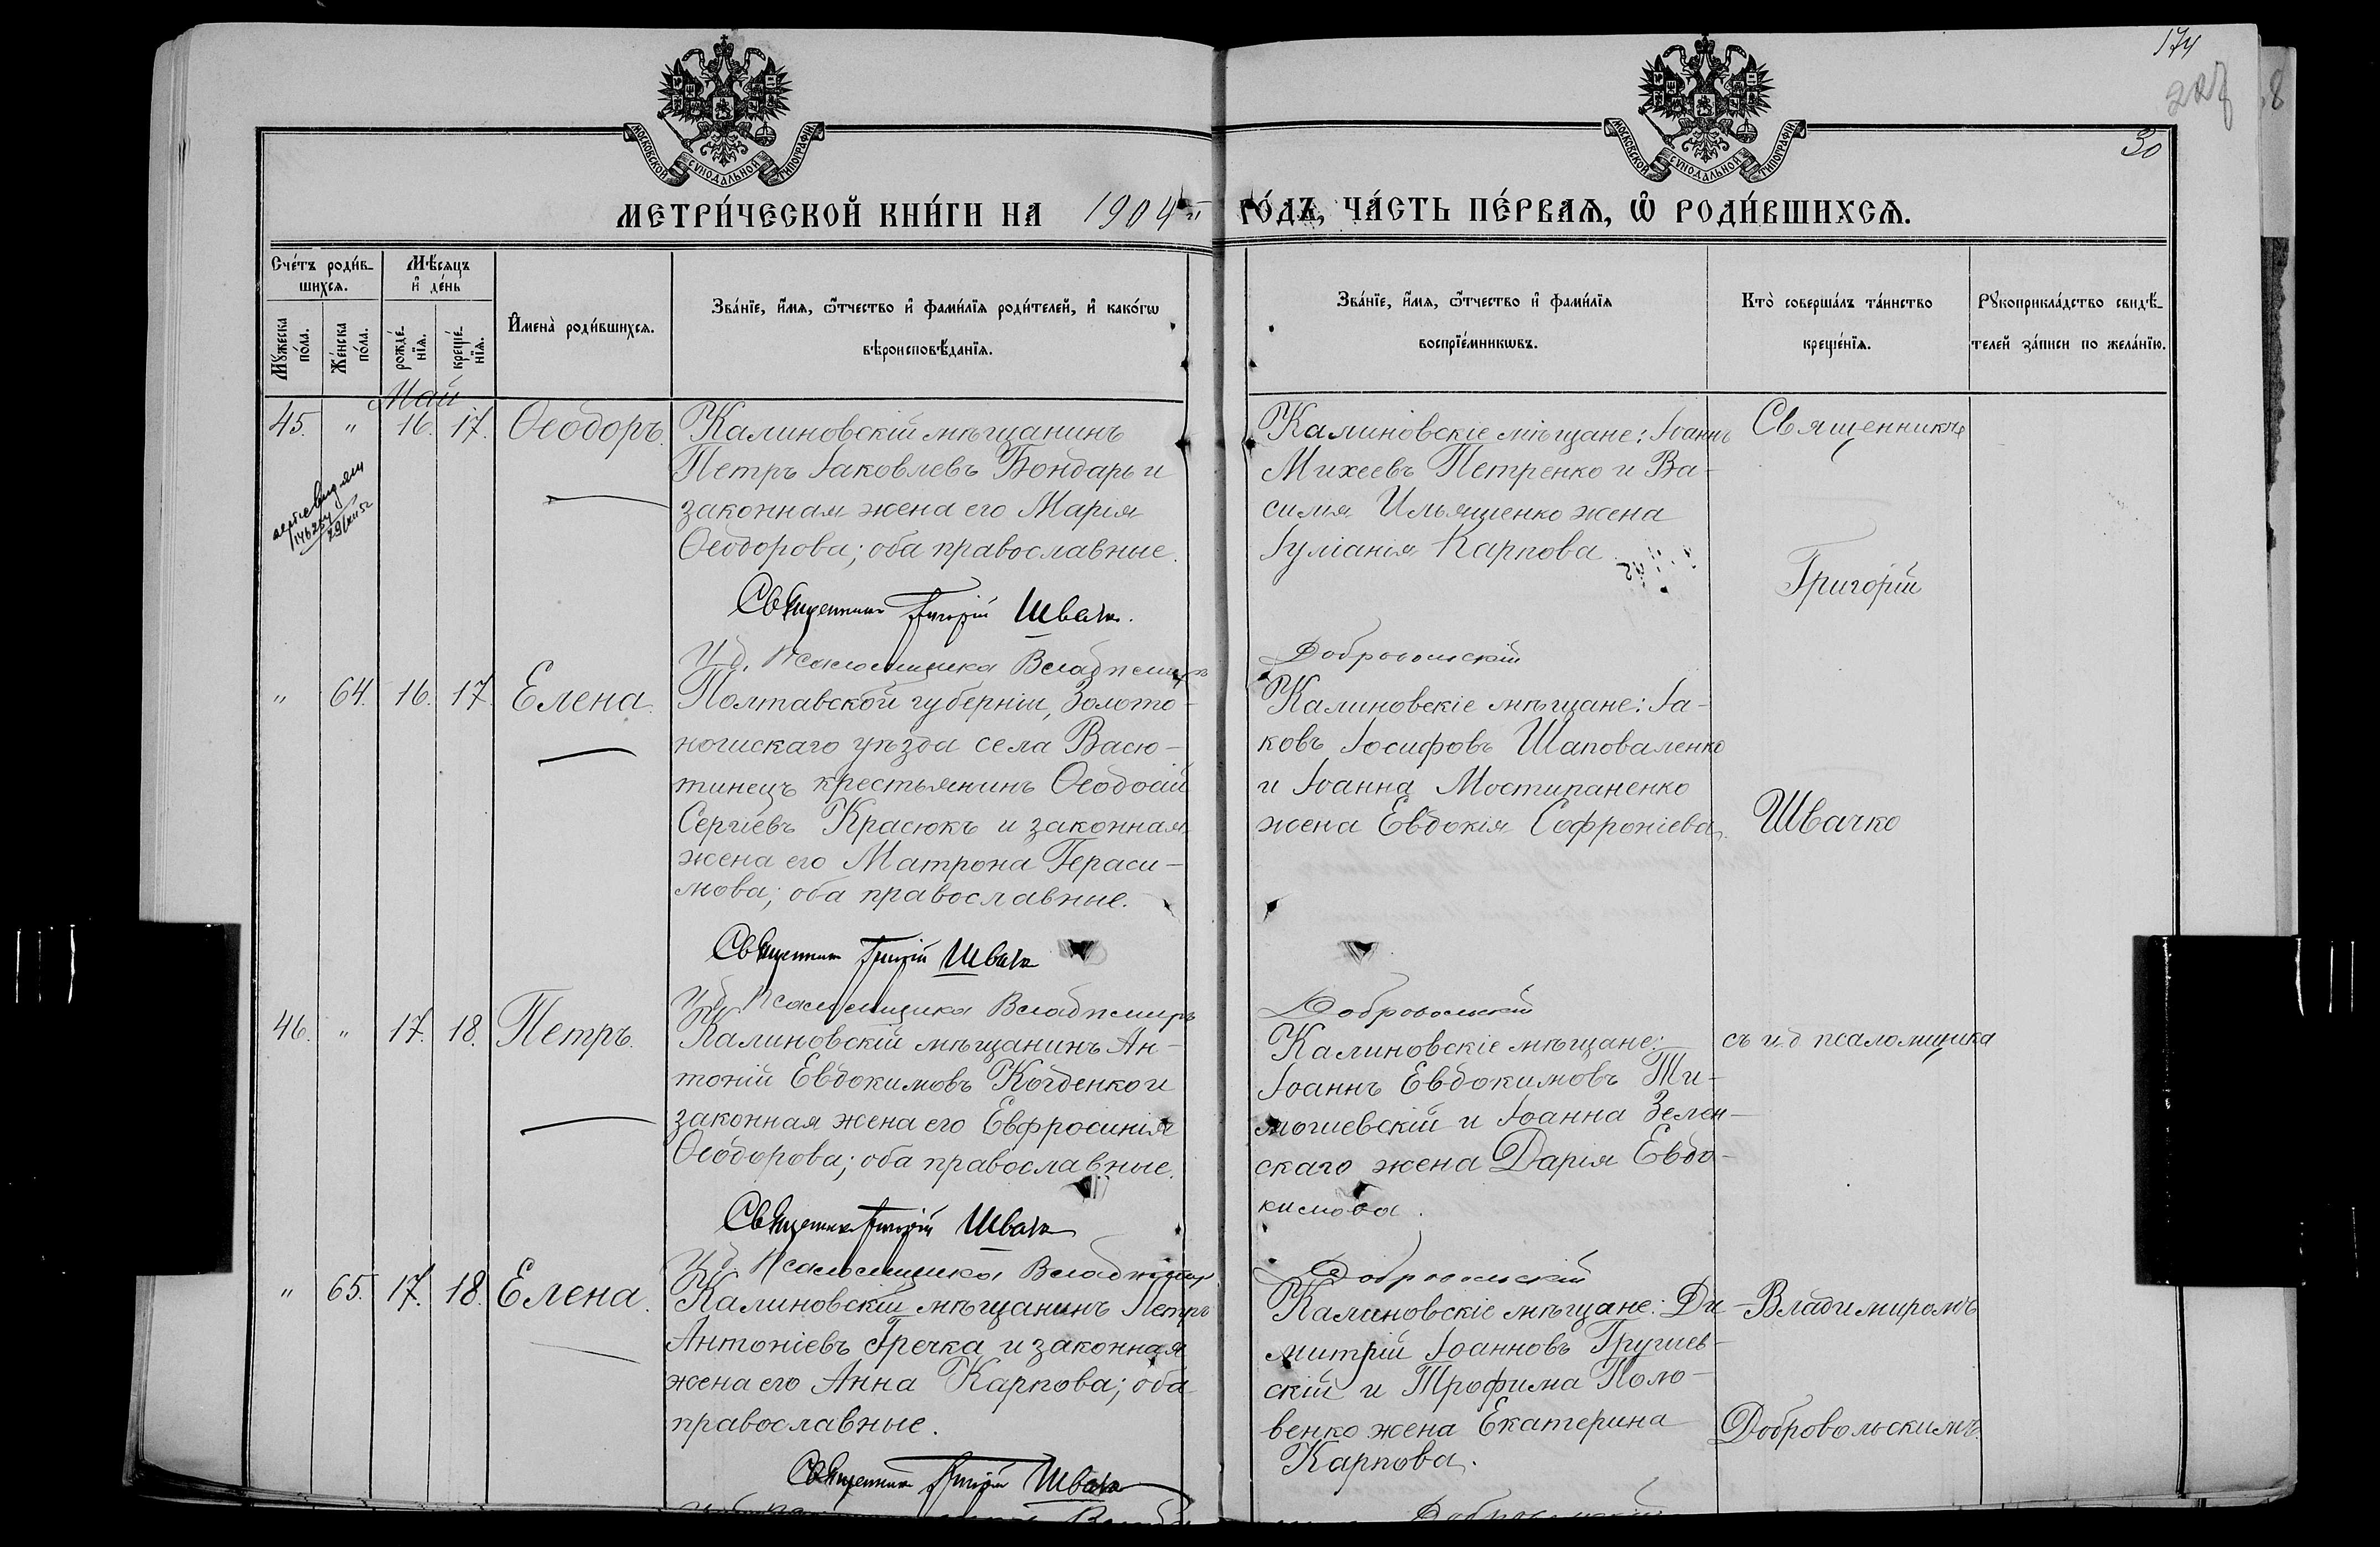 174
227
8
30
МОСКОВСКОЙ СѴНОДАЛЬНОЙ ТИПОГРАФІИ.
МОСКОВСКОЙ СѴНОДАЛЬНОЙ ТИПОГРАФІИ.
МЕТРИ́ЧЕСКОЙ КНИ́ГИ НА 1904 й
ГО́ДЪ, ЧА́СТЬ ПЕ́РВАЯ, Ѡ҆ РОДИ́ВШИХСЯ.
Сче́тъ роди́в-
шихся.
Мꙋжеска по́ла.
Же́нска по́ла.
Мѣ́сяцъ и҆ де́нь
рожде́-
нїя.
креще́-
нїя.
И҆мена̀ роди́вшихся.
Зва́нїе, и҆́мя, ѻ҆́тчество и҆ фами́лїя роди́телей, и҆ како́гѡ
вѣроисповѣ́данїя.
Зва́нїе, и҆́мя, ѻ҆́тчество и҆ фами́лїя
воспрїе́мникѡвъ.
Кто̀ соверша́лъ та́инство
креще́нїя.
Рꙋкоприкла́дство свидѣ́-
телей за́писи по жела́нїю.
Май
45. " 16. 17. Ѳеодоръ.
Калиновскій мѣщанинъ
Петръ Іаковлевъ Бондарь и
законная жена его Марія
Ѳеодорова; оба православные.
Священникъ Григорій Швачко.
И.д. Псаломщика Владимиръ
Калиновскіе мѣщане: Іоаннъ
Михеевъ Петренко и Ва-
силія Ильяшенко жена
Іуліанія Карпова
Добровольскій
Священникъ
Григорій
" 64. 16. 17. Елена.
Полтавской губерніи, Золото-
ношскаго уѣзда села Васю-
тинецъ крестьянинъ Ѳеодосій
Сергіевъ Красюкъ и законная
жена его Матрона Гераси-
мова; оба православные.
Священникъ Григорій Швачко
И.д. Псаломщика Владимиръ
Калиновскіе мѣщане: Іа-
ковъ Іосифовъ Шаповаленко
и Іоанна Мостипаненко
жена Евдокія Софроніева.
Добровольскій
Швачко
46. " 17. 18. Петръ.
Калиновскій мѣщанинъ Ан-
тоній Евдокимовъ Когденко и
законная жена его Евфросинія
Ѳеодорова; оба православные.
Священникъ Григорій Швачко
И.д. Псаломщика Владимиръ
Калиновскіе мѣщане:
Іоаннъ Евдокимовъ Ти-
мошевскій и Іоанна Зелен-
скаго жена Дарія Евдо-
кимова.
Добровольскій
съ и.д псаломщика
" 65. 17. 18. Елена.
Калиновскій мѣщанинъ Петръ
Антоніевъ Гречка и законная
жена его Анна Карпова; оба
православные.
Священникъ Григорій Швачко
Калиновскіе мѣщане: Ди-
митрій Іоанновъ Грушев-
скій и Трофима Поло-
венко жена Екатерина
Карпова.
Добровольскій
Владимиромъ
Добровольскимъ.